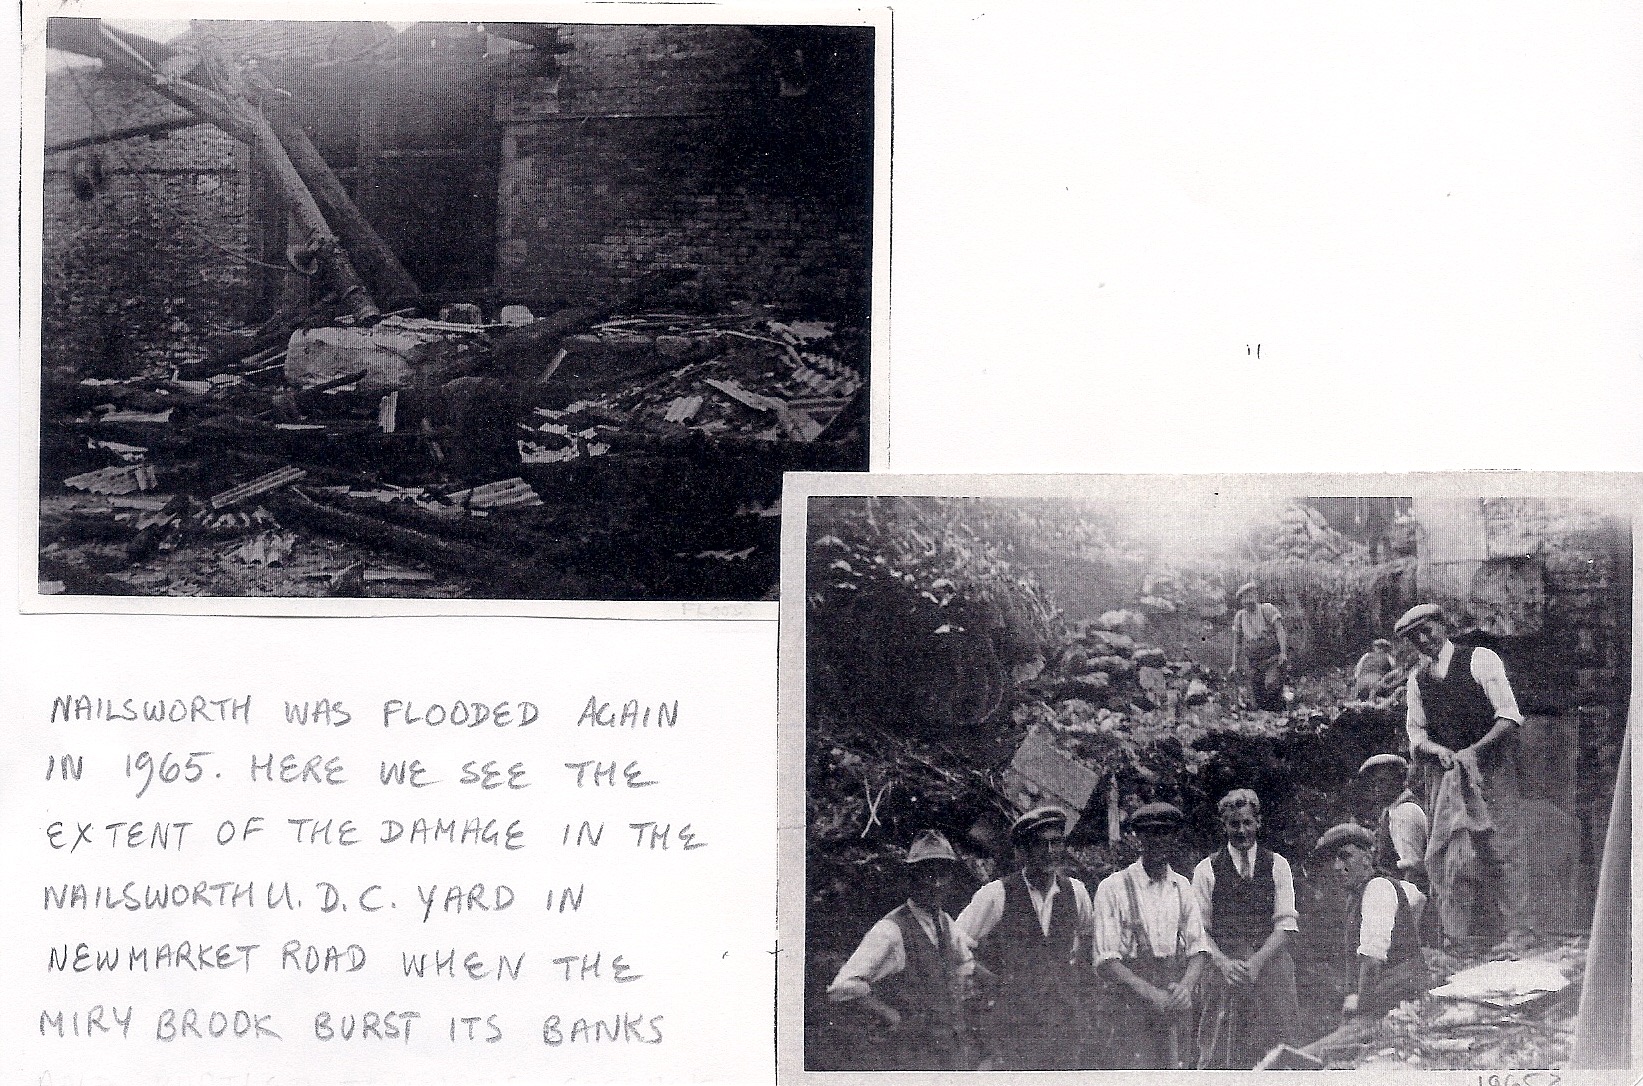 FLOODS
NAILSWORTH WAS FLOODED AGAIN
IN 1965. HERE WE SEE THE
EXTENT OF THE DAMAGE IN THE
NAILSWORTH U. D. C. YARD IN
NEWMARKET ROAD WHEN THE
MIRY BROOK BURST ITS BANKS
1965?